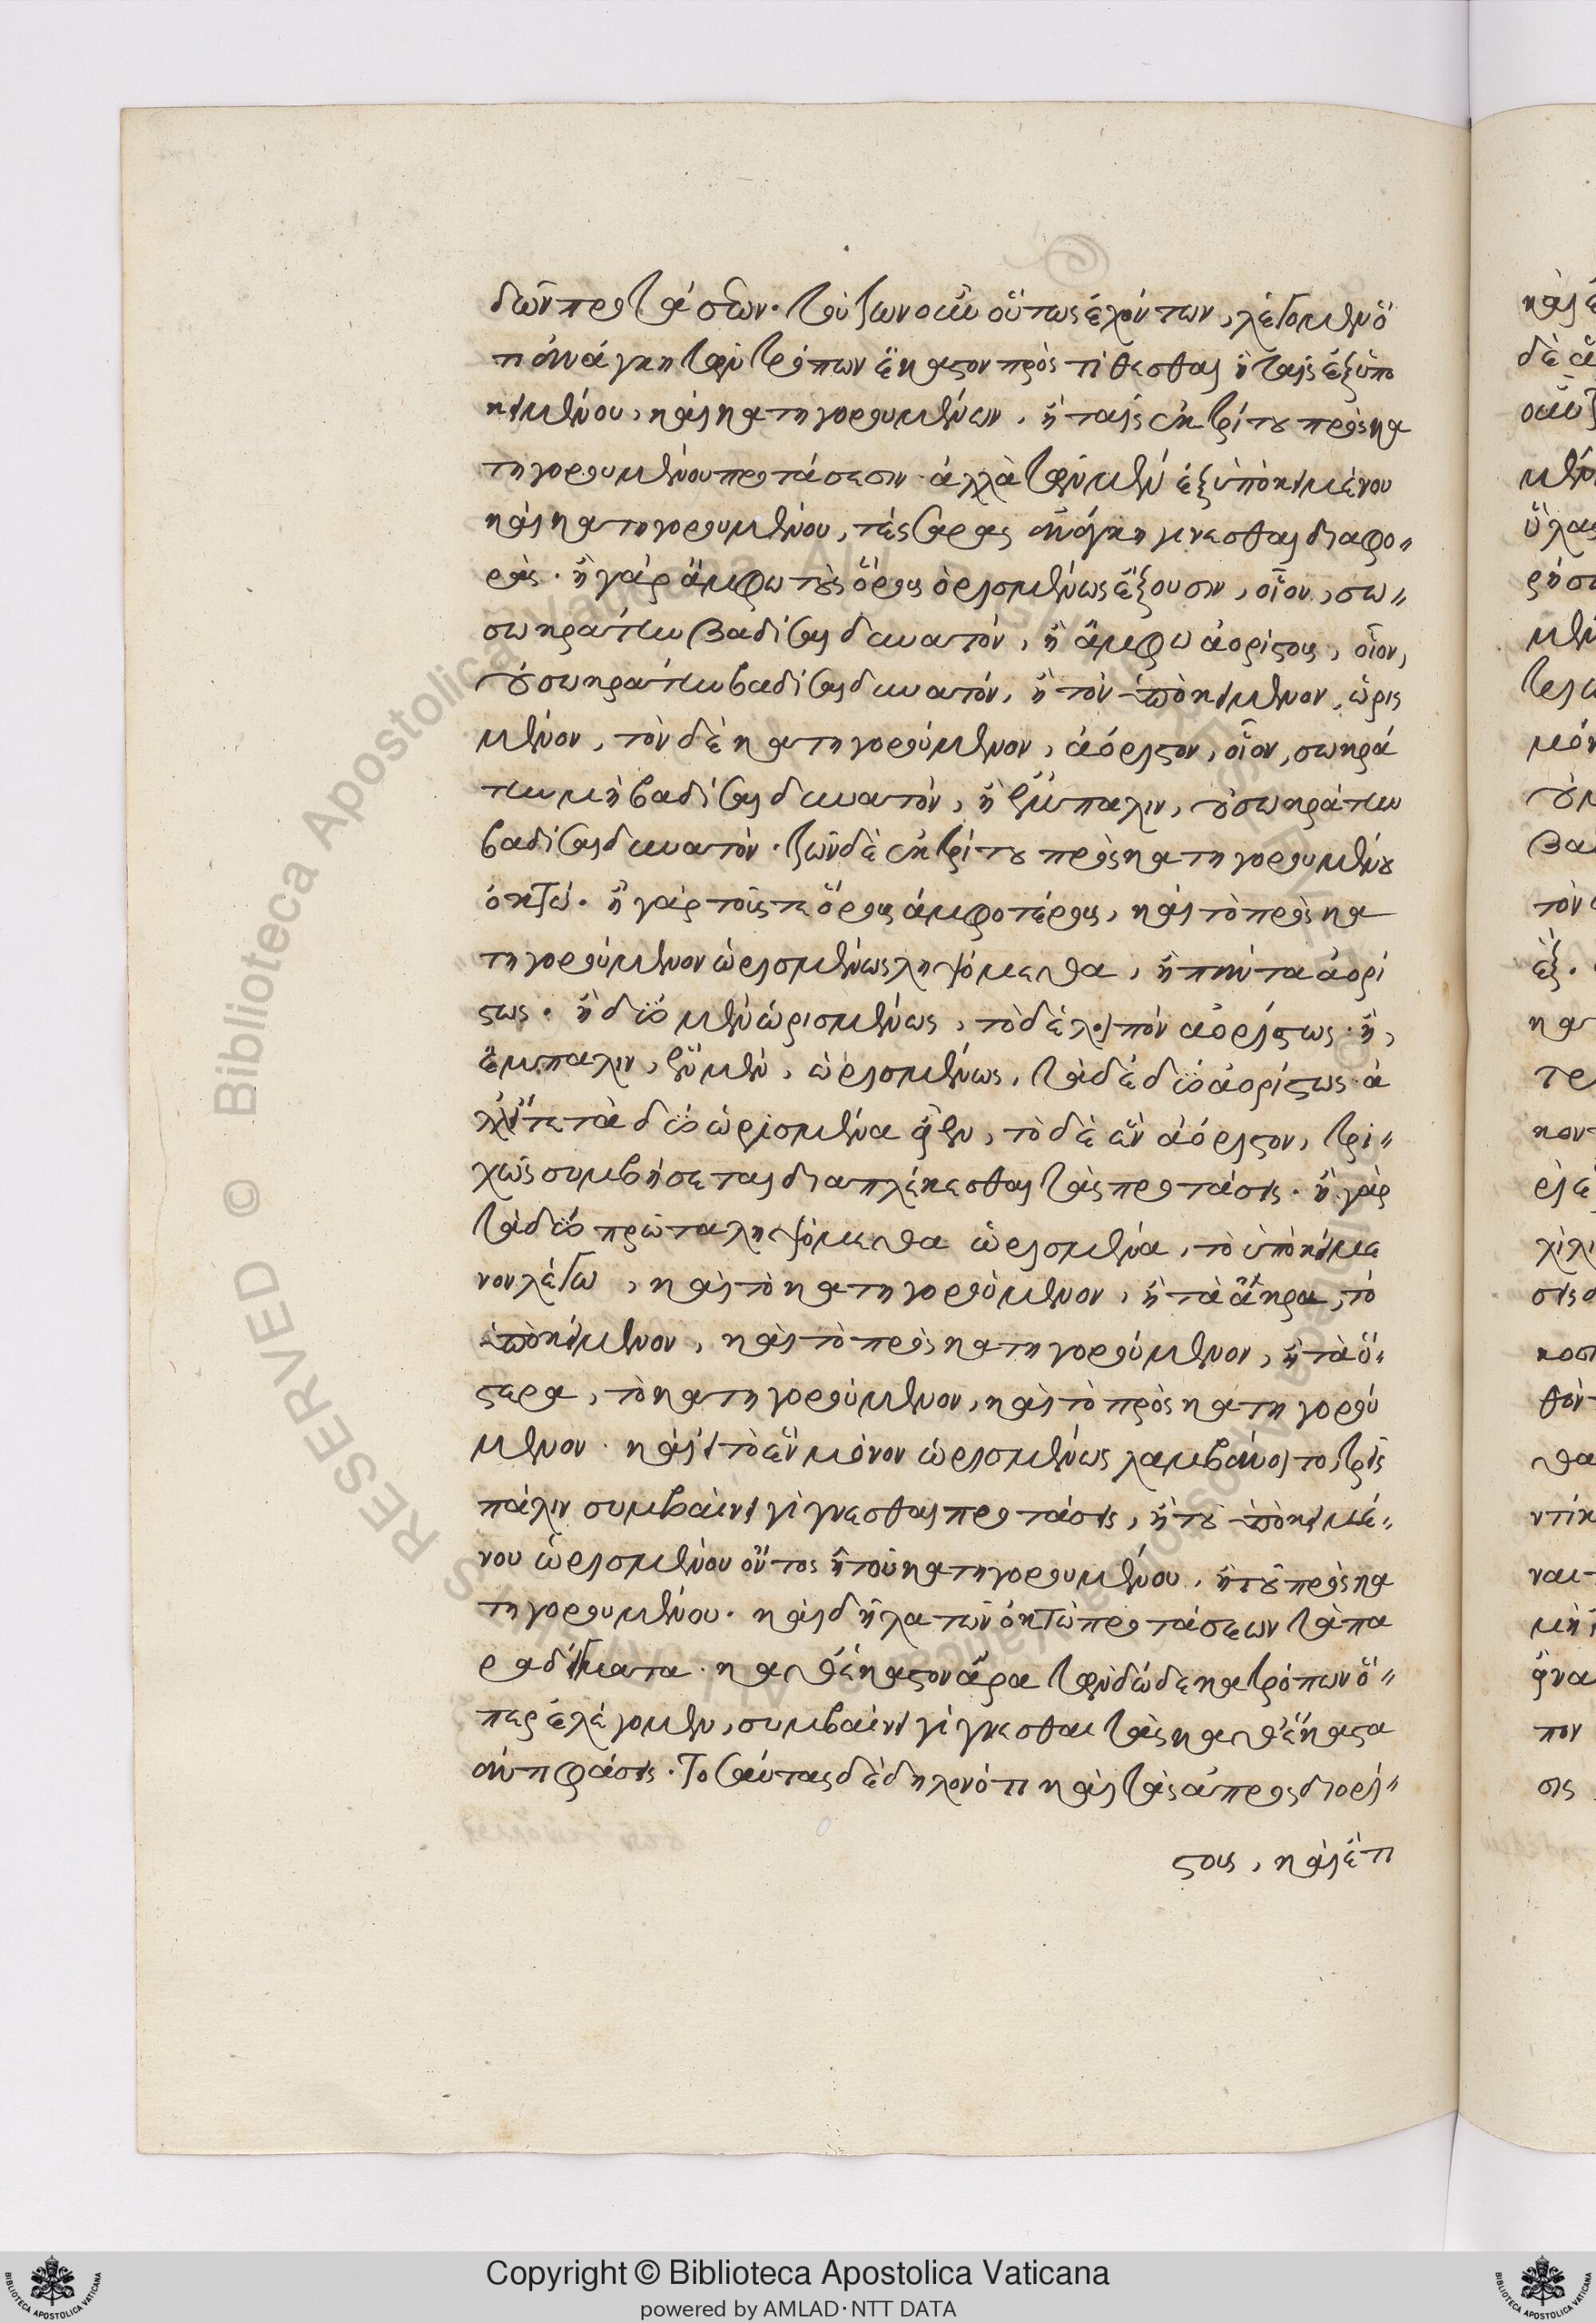 δῶν προτάσεων. τούτων οὖν οὕτως ἐχόντων, λέγομεν ὅ
τι ἀνάγκη τῶν τρόπων ἕκαστον προστίθεσθαι ἢ ταῖς ἐξ ὑπο
κειμένου, καὶ κατηγορουμένων, ἢ ταῖς ἐκ τρίτου προσκα
τηγορουμένου προτάσεσιν. ἀλλὰ τῶν μὲν ἐξ ὑποκειμένου
καὶ κατηγορουμένου, τέσσαρας ἀνάγκη γίνεσθαι διαφο〃
ράς. ἢ γὰρ ἄμφω τοὺς ὅρους ὁρισμένως ἕξουσιν, οἷον, σω〃
σωκράτην βαδίσαι δυνατόν, ἢ ἄμφω ἀορίστους, οἷον,
οὐ σωκράτην βαδίσαι δυνατόν, ἢ τὸν ὑποκείμενον, ὡρισ
μένον, τὸν δὲ κατηγορούμενον, ἀόριστον, οἷον, σωκρά
την μὴ βαδίσαι δυνατόν, ἢ ἔμπαλιν, οὐ σωκράτην
βαδίσαι δυνατόν. τῶν δὲ ἐκ τρίτου προσκατηγορουμένου
ὀκτώ. ἢ γὰρ τούς τε ὅρους ἀμφοτέρους, καὶ τὸ προσκα
τηγορούμενον ὡρισμένως ληψόμεθα, ἢ πάντα ἀορί
στως. ἢ δύο μὲν ὡρισμένως, τὸ δὲ λοιπὸν ἀορίστως. ἢ,
ἔμπαλιν, ἓν μὲν, ὡρισμένως, τὰ δὲ δύο ἀορίστως. ἀ
λλ' ὅτε τὰ δύο ὡρισμένα ᾖ, τὸ δὲ ἓν ἀόριστον, τρι〃
χῶς συμβήσεται διαπλέκεσθαι τὰς προτάσεις. ἢ γὰρ
τὰ δύο πρῶτα ληψόμεθα ὡρισμένα, τὸ ὑποκείμε
νον λέγω, καὶ τὸ κατηγορούμενον, ἢ τὰ ἄκρα, τὸ
ὑποκείμενον, καὶ τὸ προσκατηγορούμενον, ἢ τὰ ὕ〃
στερα, τὸ κατηγορούμενον, καὶ τὸ προσκατηγορού
μενον. καὶ εἰ τὸ ἓν μόνον ὡρισμένως λαμβάνοιτο, τρεῖς
πάλιν συμβαίνει γίγνεσθαι προτάσεις, ἢ τοῦ ὑποκειμέ〃
νου ὡρισμένου ὄντος ἢ τοῦ κατηγορουμένου, ἢ τοῦ προσκα
τηγορουμένου. καὶ δῆλα τῶν ὀκτὼ προτάσεων τὰ πα
ραδείγματα. καθ' ἕκαστον ἄρα τῶν δώδεκα τρόπων ὅ〃
περ ἐλέγομεν, συμβαίνει γίγνεσθαι τὰς καθ' ἕκαστα
ἀντιφάσεις. Τοσαύτας δὲ δηλονότι καὶ τὰς ἀπροσδιορί〃
στους, καὶ ἔτι